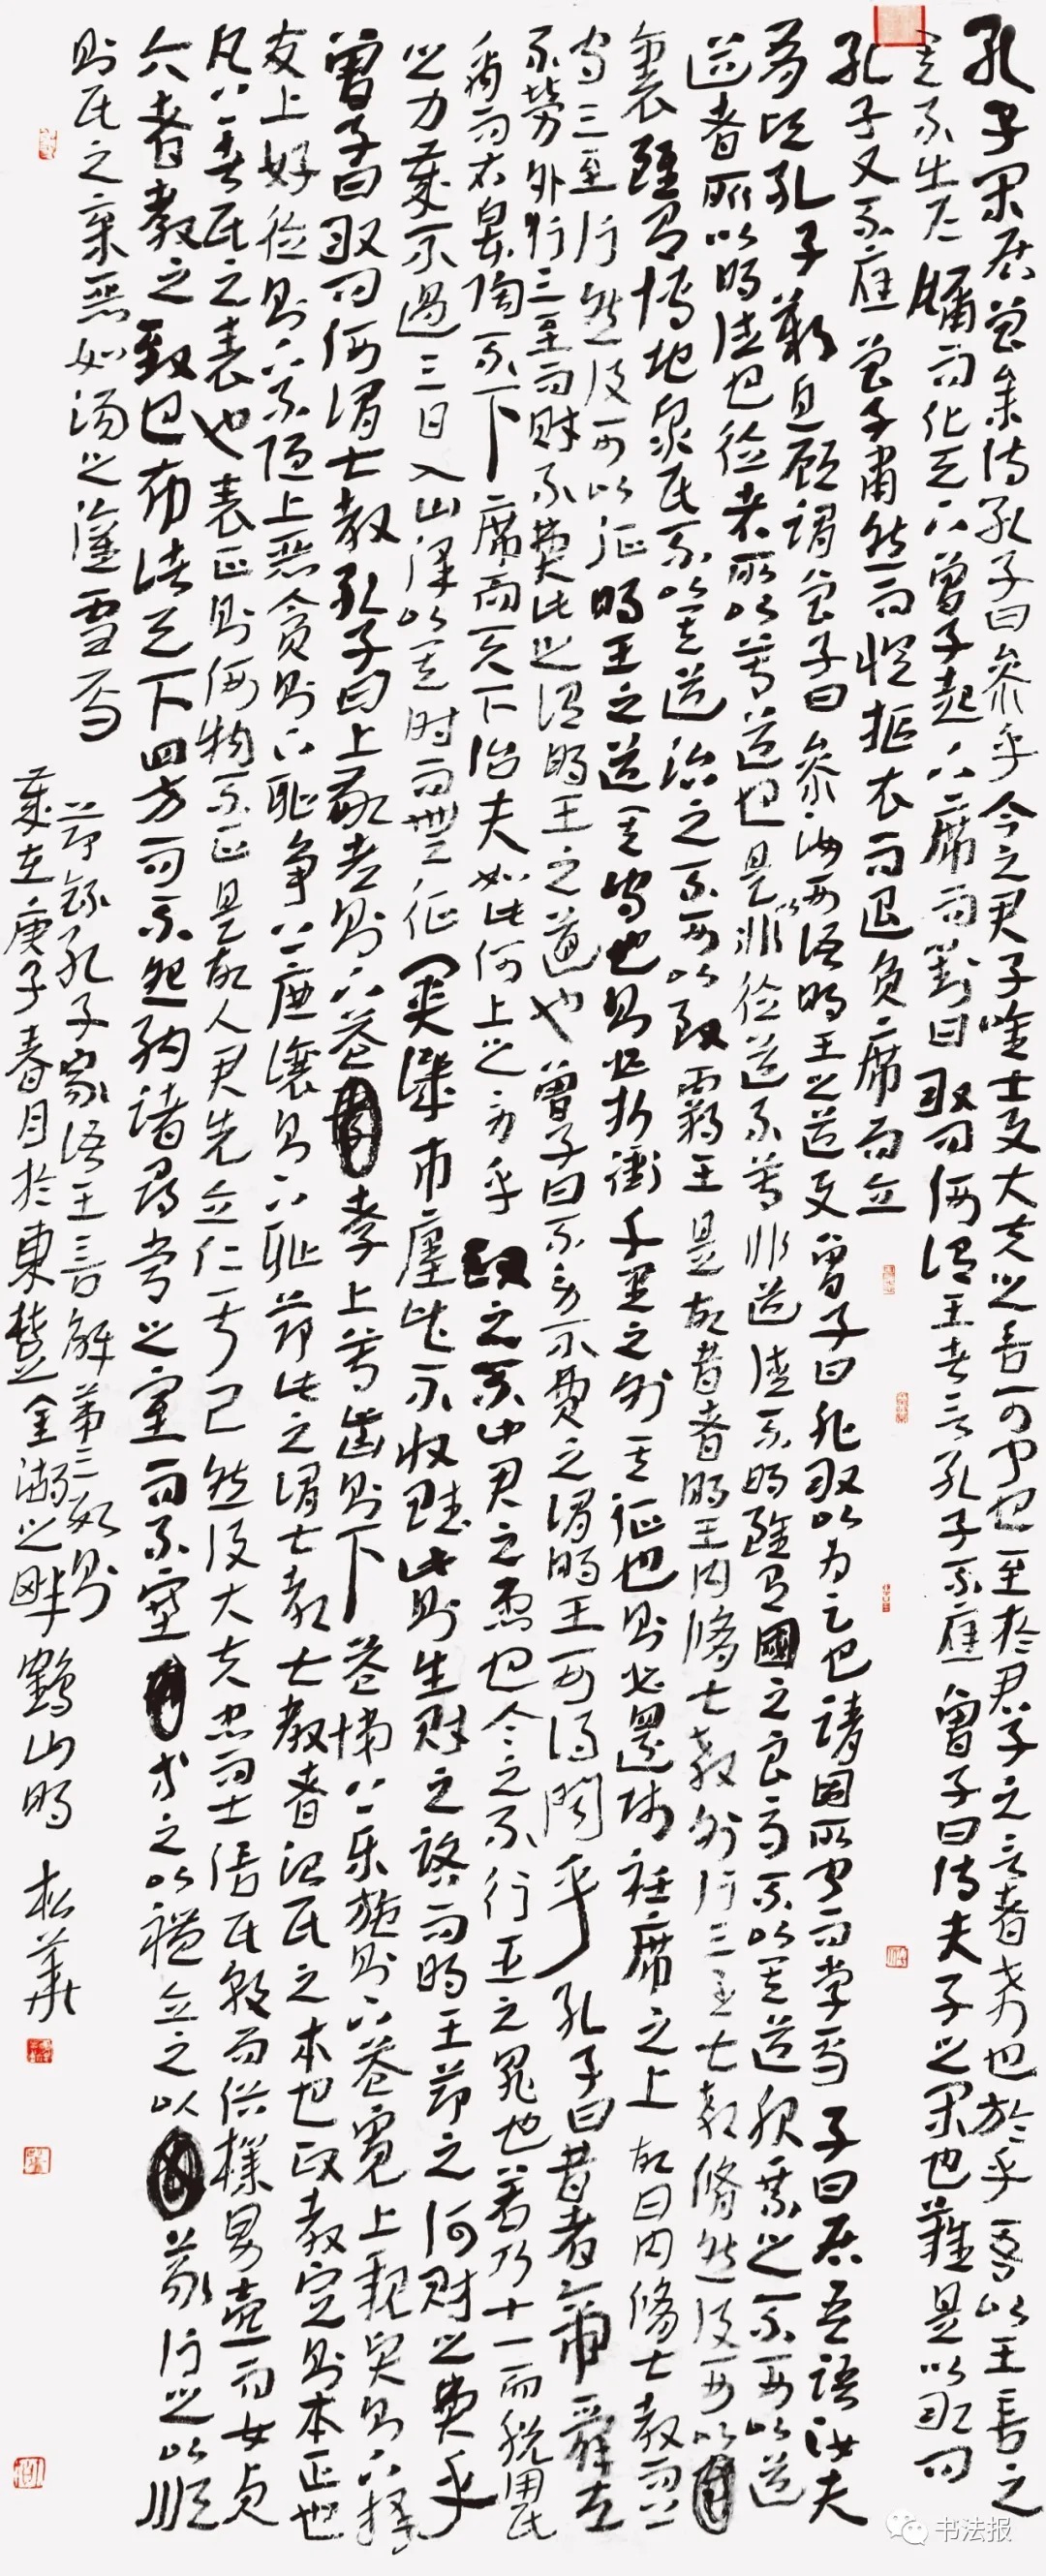 孔子閑居曾參侍孔子曰參乎今之君子唯士與大夫之言可聞也至於君子之言者希也於乎吾以王言之
其不出户牖而化天下曾子起下席而對曰敢问何謂王者言孔子不應曾子曰侍夫子之閑也難是以敢问
孔子又不應曾子肅然而懼抠衣而退負席而立
有頃孔子歎息顧謂曾子曰參汝可語明王之道與曾子曰非敢以为足也請因所聞而学焉子曰居吾語汝夫
道者所以明德也德者所以尊道也是以非德道不尊非道德不明雖有國之良马不以其道服乘之不可以道
裏雖有博地眾民不以其道治之不可以致霸王是故昔者明王内修七教外行三至七教修然後可以
守三至行然後可以征明王之道其守也則必折衝千里之外其征也則必還師衽席之上故曰内修七教而上
不勞外行三至而財不費此之謂明王之道也曾子曰不勞不費之謂明王可得聞乎孔子曰昔者帝舜左
禹而右皋陶不下席而天下治夫如此何上之勞乎政之不中君之患也令之不行臣之罪也若乃十一而税用民
之力歲不過三日入山澤以其时而無征関譏市廛皆不收賦此則生財之路而明王節之何財之費乎
曾子曰敢问何謂七教孔子曰上敬老則下益孝上尊齒則下益悌上乐施則下益寬上親賢則下擇
友上好德則下不隱上惡貪則下恥争上廉讓則下恥節此之謂七教七教者治民之本也政教定則本正也
凡上者民之表也表正則何物不正是故人君先立仁于己然後大夫忠而士信民敦而俗樸男慤而女貞
六者教之致也布諸天下四方而不怨納諸尋常之室而不塞之以禮立之以義行之以順
則民之棄惡如湯之灌雪焉
節録孔子家语王言解第三數則
歲在庚子春月於東楚金湖之畔鶴山明 松華
书法报